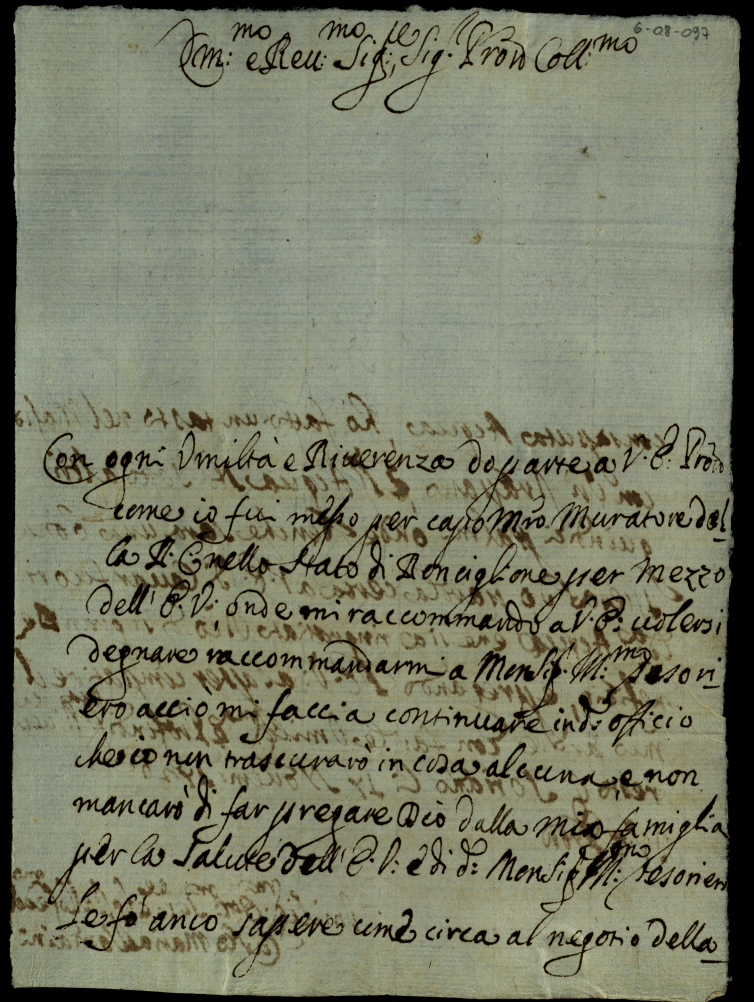 6-08-097
Em:mo e Reu:mo Sig:re, Sig. Prõn Coll:mo
Con ogni Vmiltà e Riuerenza do parte a V. E: Prõn
come io fui messo per capo Mro Muratore del
la R: C nello Stato di Ronciglione per mezzo
dell' E. V: onde mi raccommando a V. E: uolersi
degnare raccommandarmi a Monsig.r Ill:mo Tesori
ero acciò mi faccia continuare in d:o officio
che io non trascurarò in cosa alcuna, e non
mancarò di far pregare Dio dalla mia famiglia
per la Salute dell' E. V: e di d:o Monsig.r Ill:mo Tesoriero
Le fò anco sapere come circa al negotio della